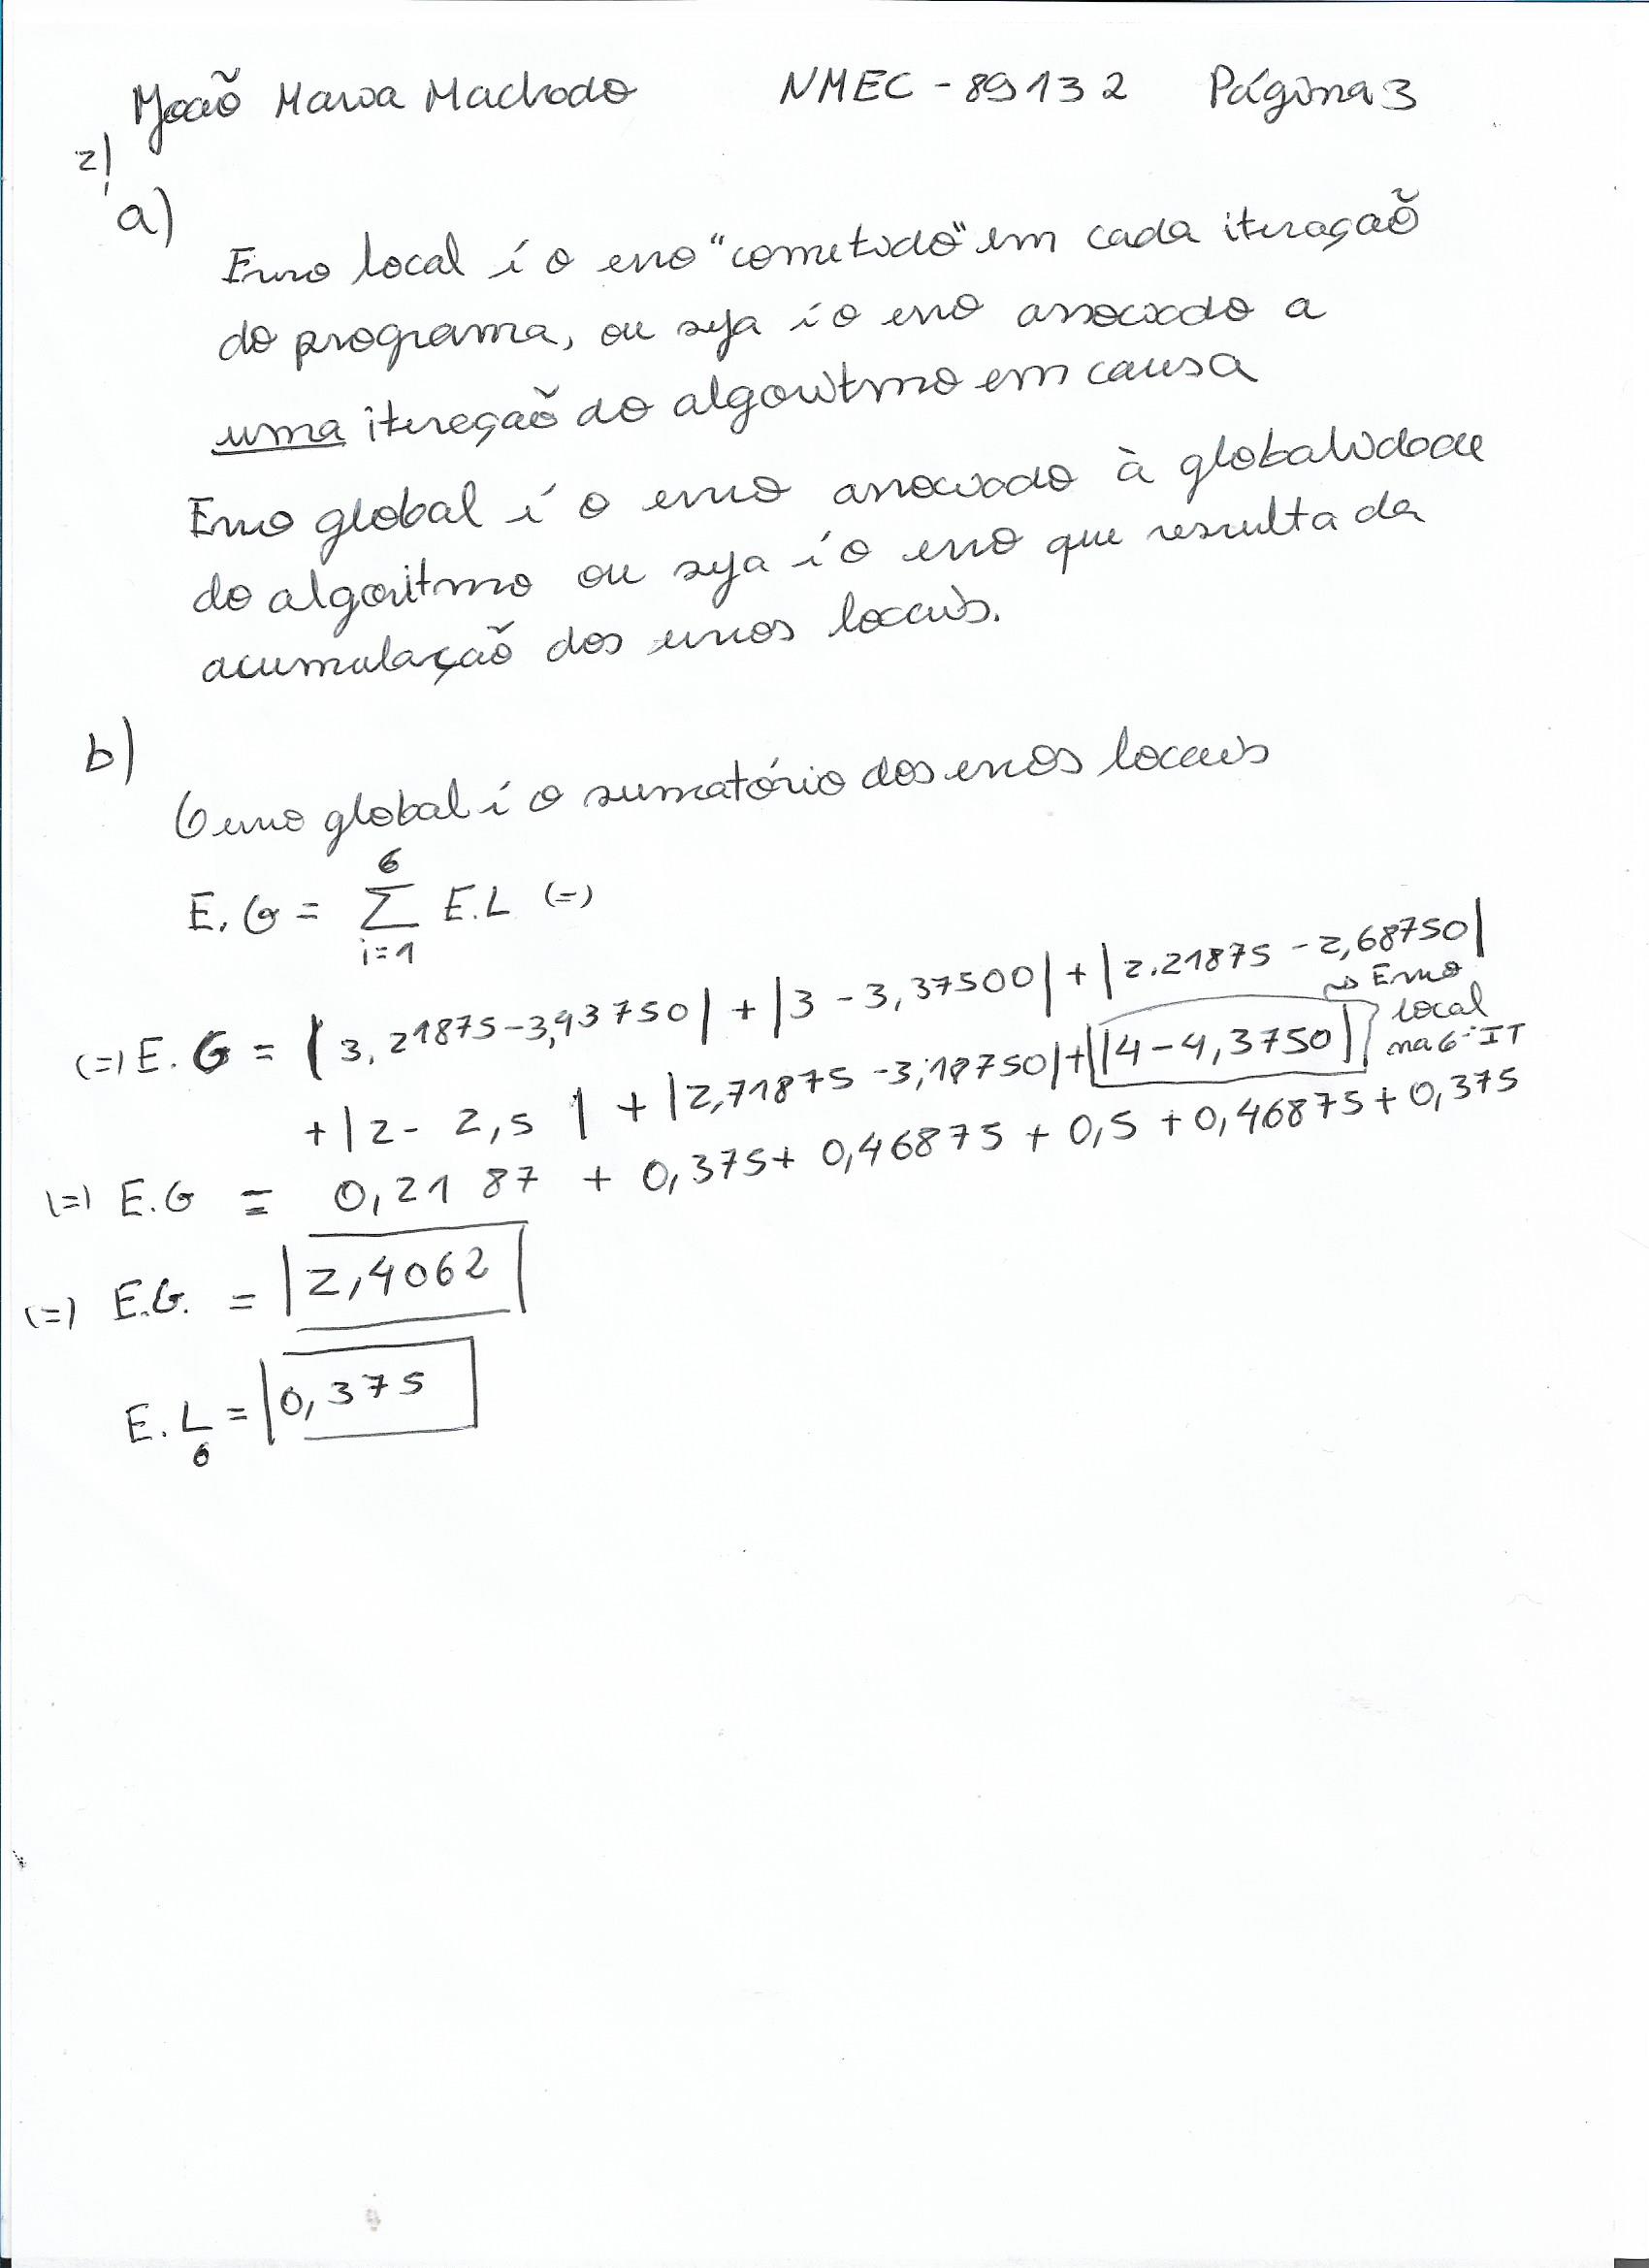 João Maria Machado NMEC - 89132 Página 3
2)
a)
Erro local é o erro "cometido" em cada iteração
do programa, ou seja é o erro associado a
uma iteração do algoritmo em causa
Erro global é o erro associado à globalidade
do algoritmo ou seja é o erro que resulta da
acumulação dos erros locais.
b)
O erro global é o sumatório dos erros locais
6
E.G = Σ E.L (=)
i=1
(=) E.G = |3,21875-3,43750| + |3-3,37500| + |2.21875-2,68750|
→ Erro
local
na 6ª IT
+|2-2,5| + |2,71875-3,18750|+|4-4,3750|
(=) E.G = 0,2187 + 0,375+ 0,46875 + 0,5 + 0,46875+0,375
(=) E.G. = 2,4062
E.L6 = 0,375